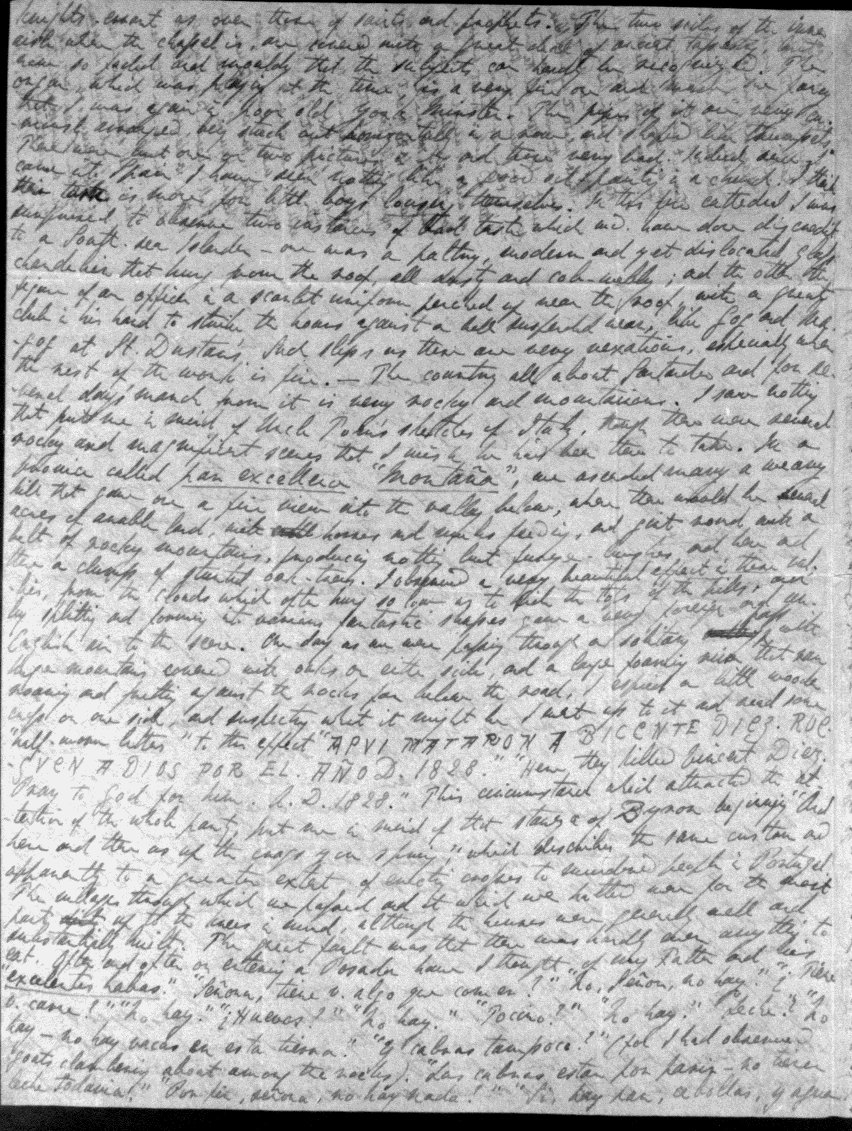 knights errant as over those of saints and prophets. The two sides of the inner
aisle where the chapel is, are covered with a great deal of ancient tapestry, but
now so faded and mouldy that the subjects can hardly be recognized. The
organ, which was playing at the time, is a very fine one and made me fancy
that I was again in poor old York Minster. The pipes of it are very
arranged, being stuck out horizontally in a row and shaped like trumpets.
There were but one or two pictures in it and these very bad. Indeed since I
came into Spain I have seen nothing like a good set of paintings in a church. I think
their taste is more for little boys' themselves. In this fine cathedral I was
surprised to observe two instances of bad taste which wd. have done discredit
to a South sea Islander – one was a paltry, modern and yet dislocated glass
chandelier that hung from the roof all dusty and cob-webby; and the other the
figure of an officer in a scarlet uniform perched up near the roof, with a great
club in his hand to strike the hours against a bell suspended near, like Gog and Ma-
-gog at St. Dunstan's. Such slips as these are very vexatious, especially when
the rest of the work is fine. — The country all about Santander and for se-
-veral day's march from it is very rocky and mountainous. I saw nothing
that put me in mind of Uncle Tom's sketches of Italy, though there were several
rocky and magnificent scenes that I wish he had been there to take. In a
province called par excellence "Montaña", we ascended many a weary
hill that gave one a fine view into the valley below, where there would be several
acres of arable land, with houses and smoke feeding, and girt round with a
belt of rocky mountains, producing nothing but furze-bushes and here and
there a clump of stunted oak-trees. I observed a very beautiful effect in these val-
-lies, from the clouds which often hung so low as to hide the tops of the hills, and
by splitting and forming into various fantastic shapes gave a very foreign and un-
English air to the scene. One day as we were passing through a solitary pass with
huge mountains covered with oaks on either side and a large foaming river that ran
roaring and fretting against the rocks far below the road, I espied a little wooden
cross on one side, and suspecting what it might be I went up to it and read some
half-worn letters to this effect "AQVI MATARON A BICENTE DIEZ. ROE.
-GVEN A DIOS POR EL. AÑO D. 1828." "Here they killed Vincent Diez.
Pray to God for him. A. D. 1828." This circumstance which attracted the at-
-tention of the whole party, put me in mind of that stanza of Byron beginning "And
here and there as up the crags you spring," which describes the same custom and
apparently to a greater extent of erecting crosses to murdered people in Portugal.
The villages through which we passed and at which we halted were for the most
part up to the knees in mud, although the houses were generally well and
substantially built. The great fault was that there was hardly ever anything to
eat. Often and often on entering a Posada have I thought of my Father and his
"excelentes habas." "Señora, tiene v. algo que comer?" "No, Señor, no hay." "¿Tiene
v. carne?" "No hay." "¿Huevos?" "No hay." "Tocino?" "No hay." "Leche?" "No
hay – no hay vacas en esta tierra." "Y cabras tampoco?" (for I had observed
goats clambering about among the rocks). "Las cabras estan por parir – no tienen
leche todavia." "Por fin, señora, no hay nada!" "Si, hay pan, cebollas, y agua